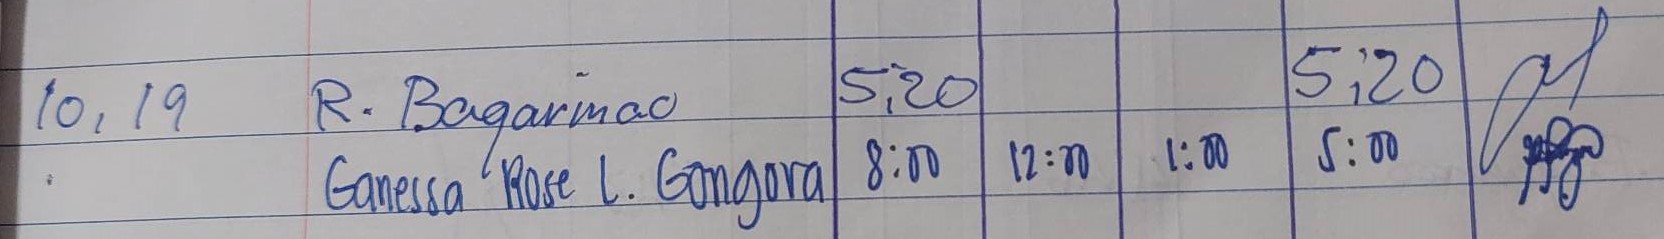 10, 19 R. Bagarinao 5:20 5:20
Ganessa Rose L. Gongora 8:00 12:00 1:00 5:00